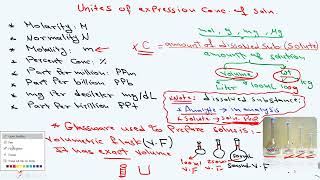 Unites of expression Conc. of soln.
* Molarity: M
* Normality N
* Molality: m
* Percent Conc. %
* Part Per million: PPm
* Part Per billion: PPb
* mg Per deciliter mg/dL
* Part Per trillion PPt
mol, g, mg, Mg
* C = amount of dissolved sub (Solute)
amount of solution
Volume
Wt
Liter
100mL
100g
kg
* Note: dissolved substance:
* Analyte → in analysis
* Solute → soln. Prep
* Glassware used to Prepare solns is:-
Volumetric flask (V.F)
It has exact Volume
100mL
V.F
250mL
V.F
500mL
V.F